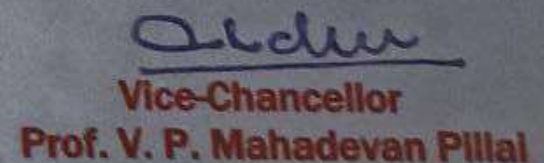 Vice-Chancellor
Prof. V. P. Mahadevan Pillai